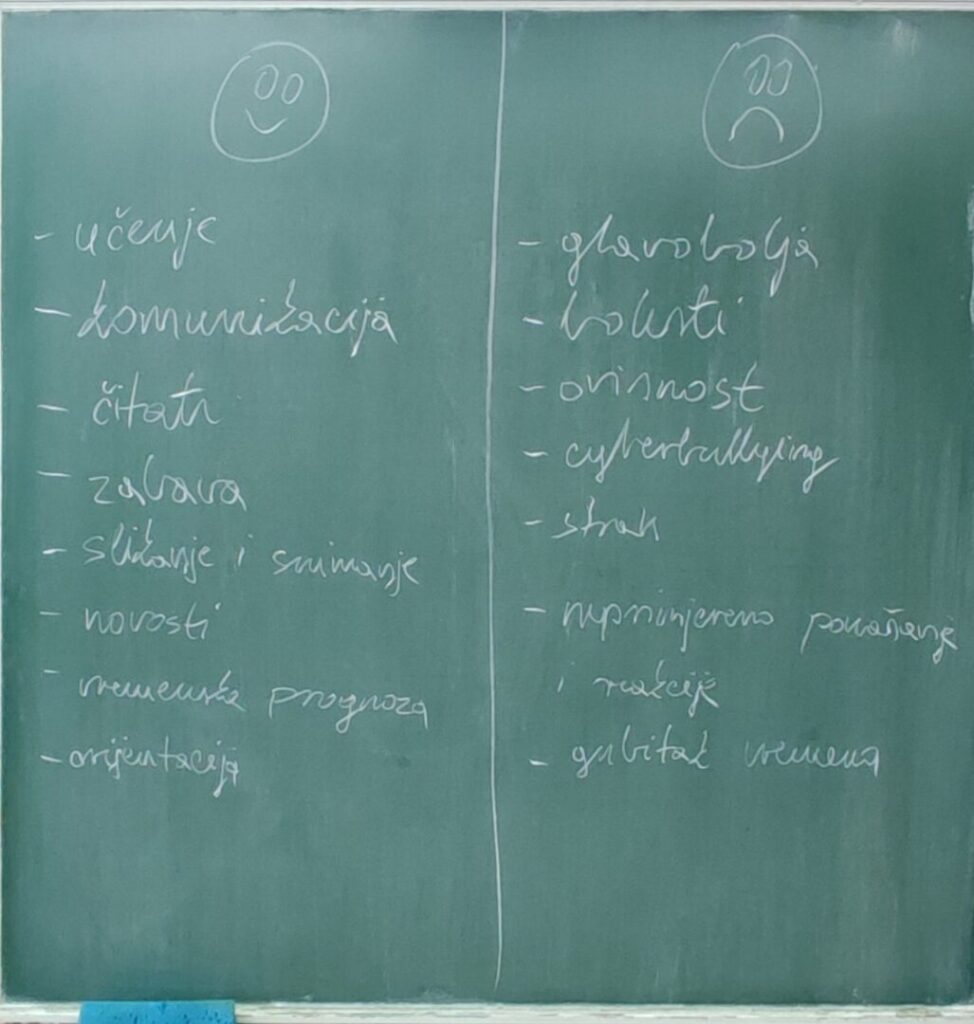 - učenje
- komunikacija
- čitati
- zabava
- slikanje i snimanje
- novosti
- vremenska prognoza
- orijentacija
- glavobolja
- bolesti
- ovisnost
- cyberbullying
- strah
- neprimjereno ponašanje
i reakcije
- gubitak vremena